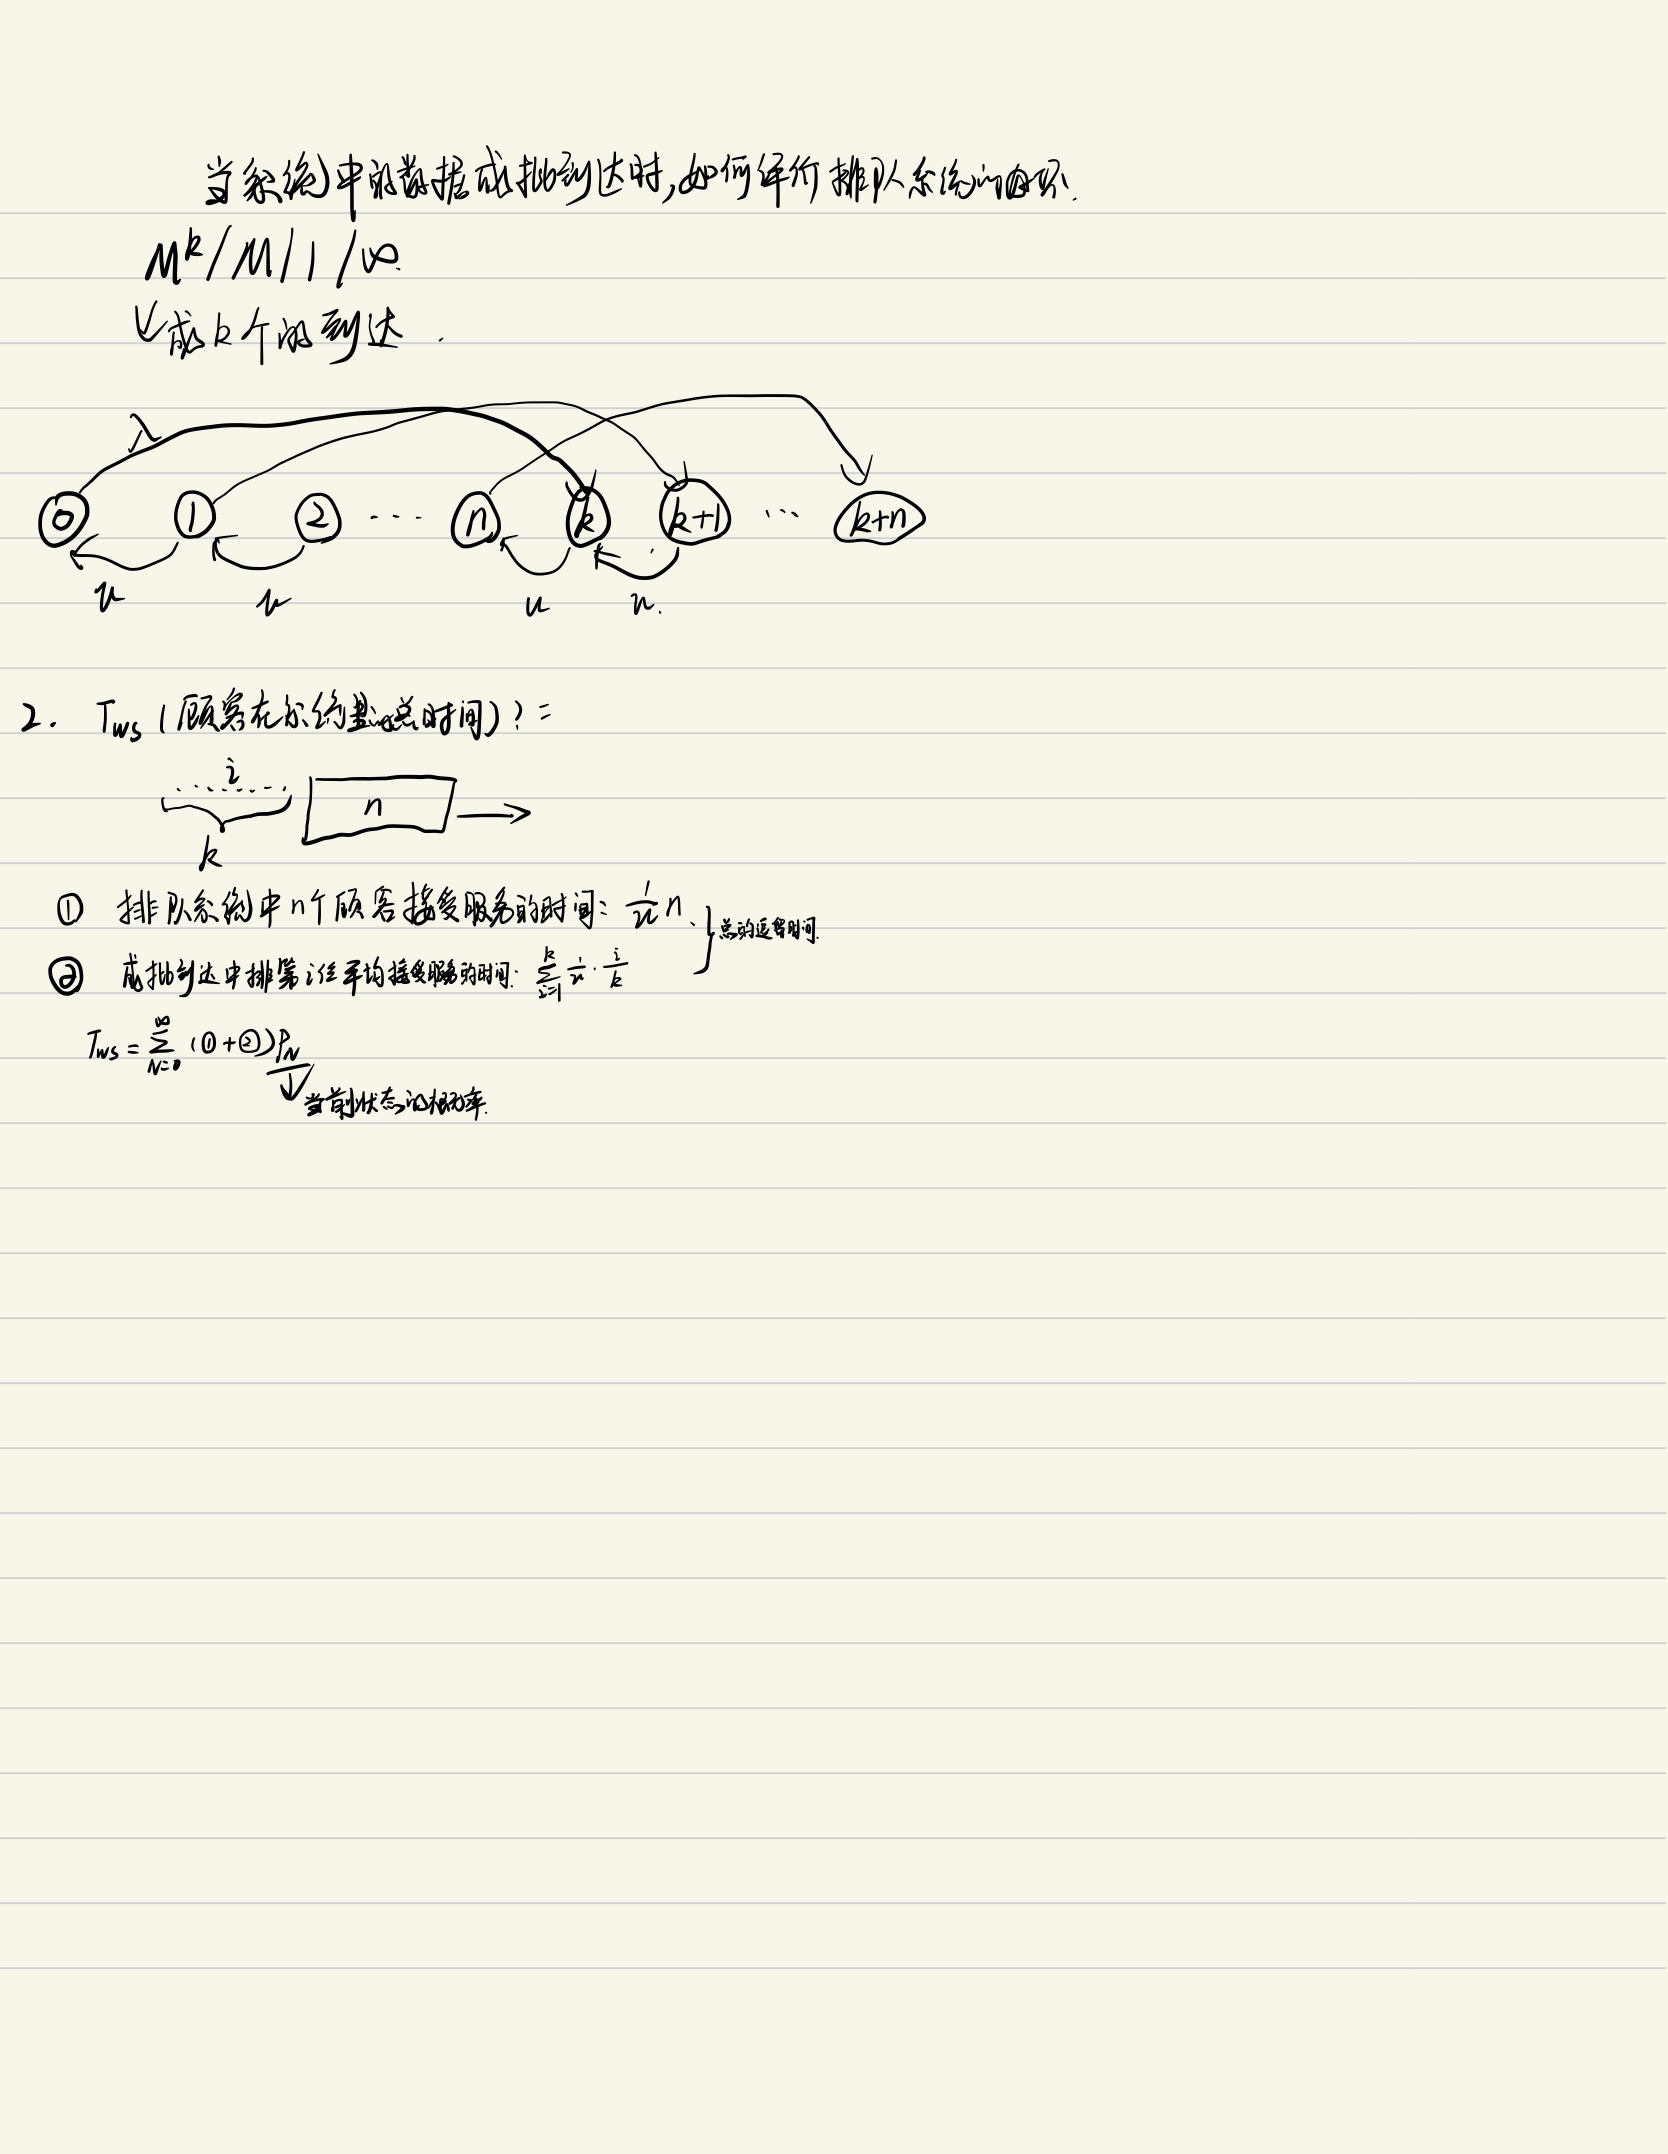 当系统中的数据成批到达时,如何评价排队系统的
M^k/M/1/∞.
成k个的到达.
λ
0 1 2 ... n k k+1 ... k+n
u u u u.
2. Tws (顾客在系统里的总时间)? =
i
n
k
① 排队系统中n个顾客接受服务的时间: 1/u n
总的逗留时间.
② 成批到达中排第i位平均接受服务的时间: ∑_{i=1}^{k} 1/u · i/k
Tws = ∑_{N=0}^{∞} (①+②)P_N
当前状态的概率.